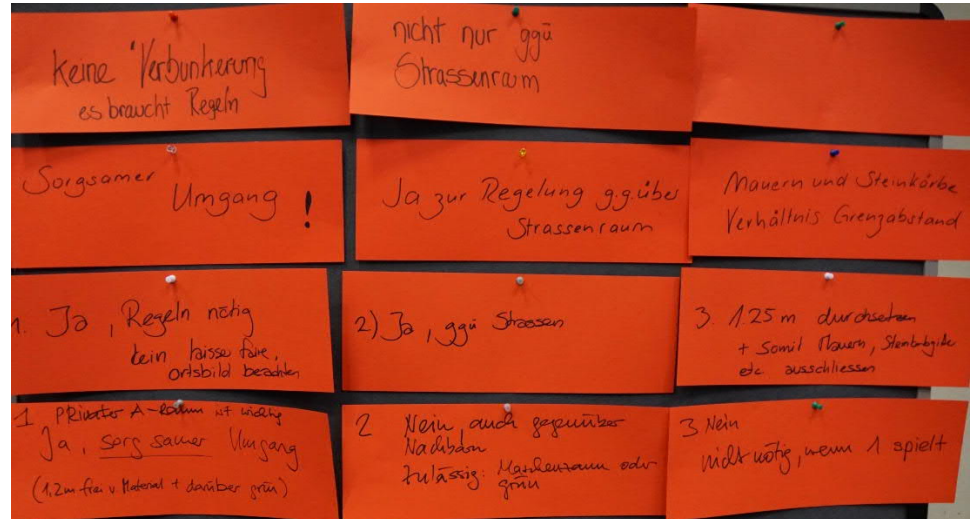 keine Verbunkerung
es braucht Regeln
nicht nur ggü
Strassenraum
Sorgsamer
Umgang !
Ja zur Regelung g.g.über
Strassenraum
Mauern und Steinkörbe
Verhältnis Grenzabstand
1. Ja, Regeln nötig
kein laisser faire,
ortsbild beachten
2) Ja, ggü Strassen
3. 1.25 m durchsetzen
+ somit Mauern,
etc. ausschliessen
1 Privater A-Raum ist wichtig
Ja, sorgsamer Umgang
(1,2m frei v. Material + darüber grün)
2 Nein, auch gegenüber
Nachbarn
Zulässig: Maschenzaun oder
grün
3. Nein
nicht nötig, wenn 1 spielt